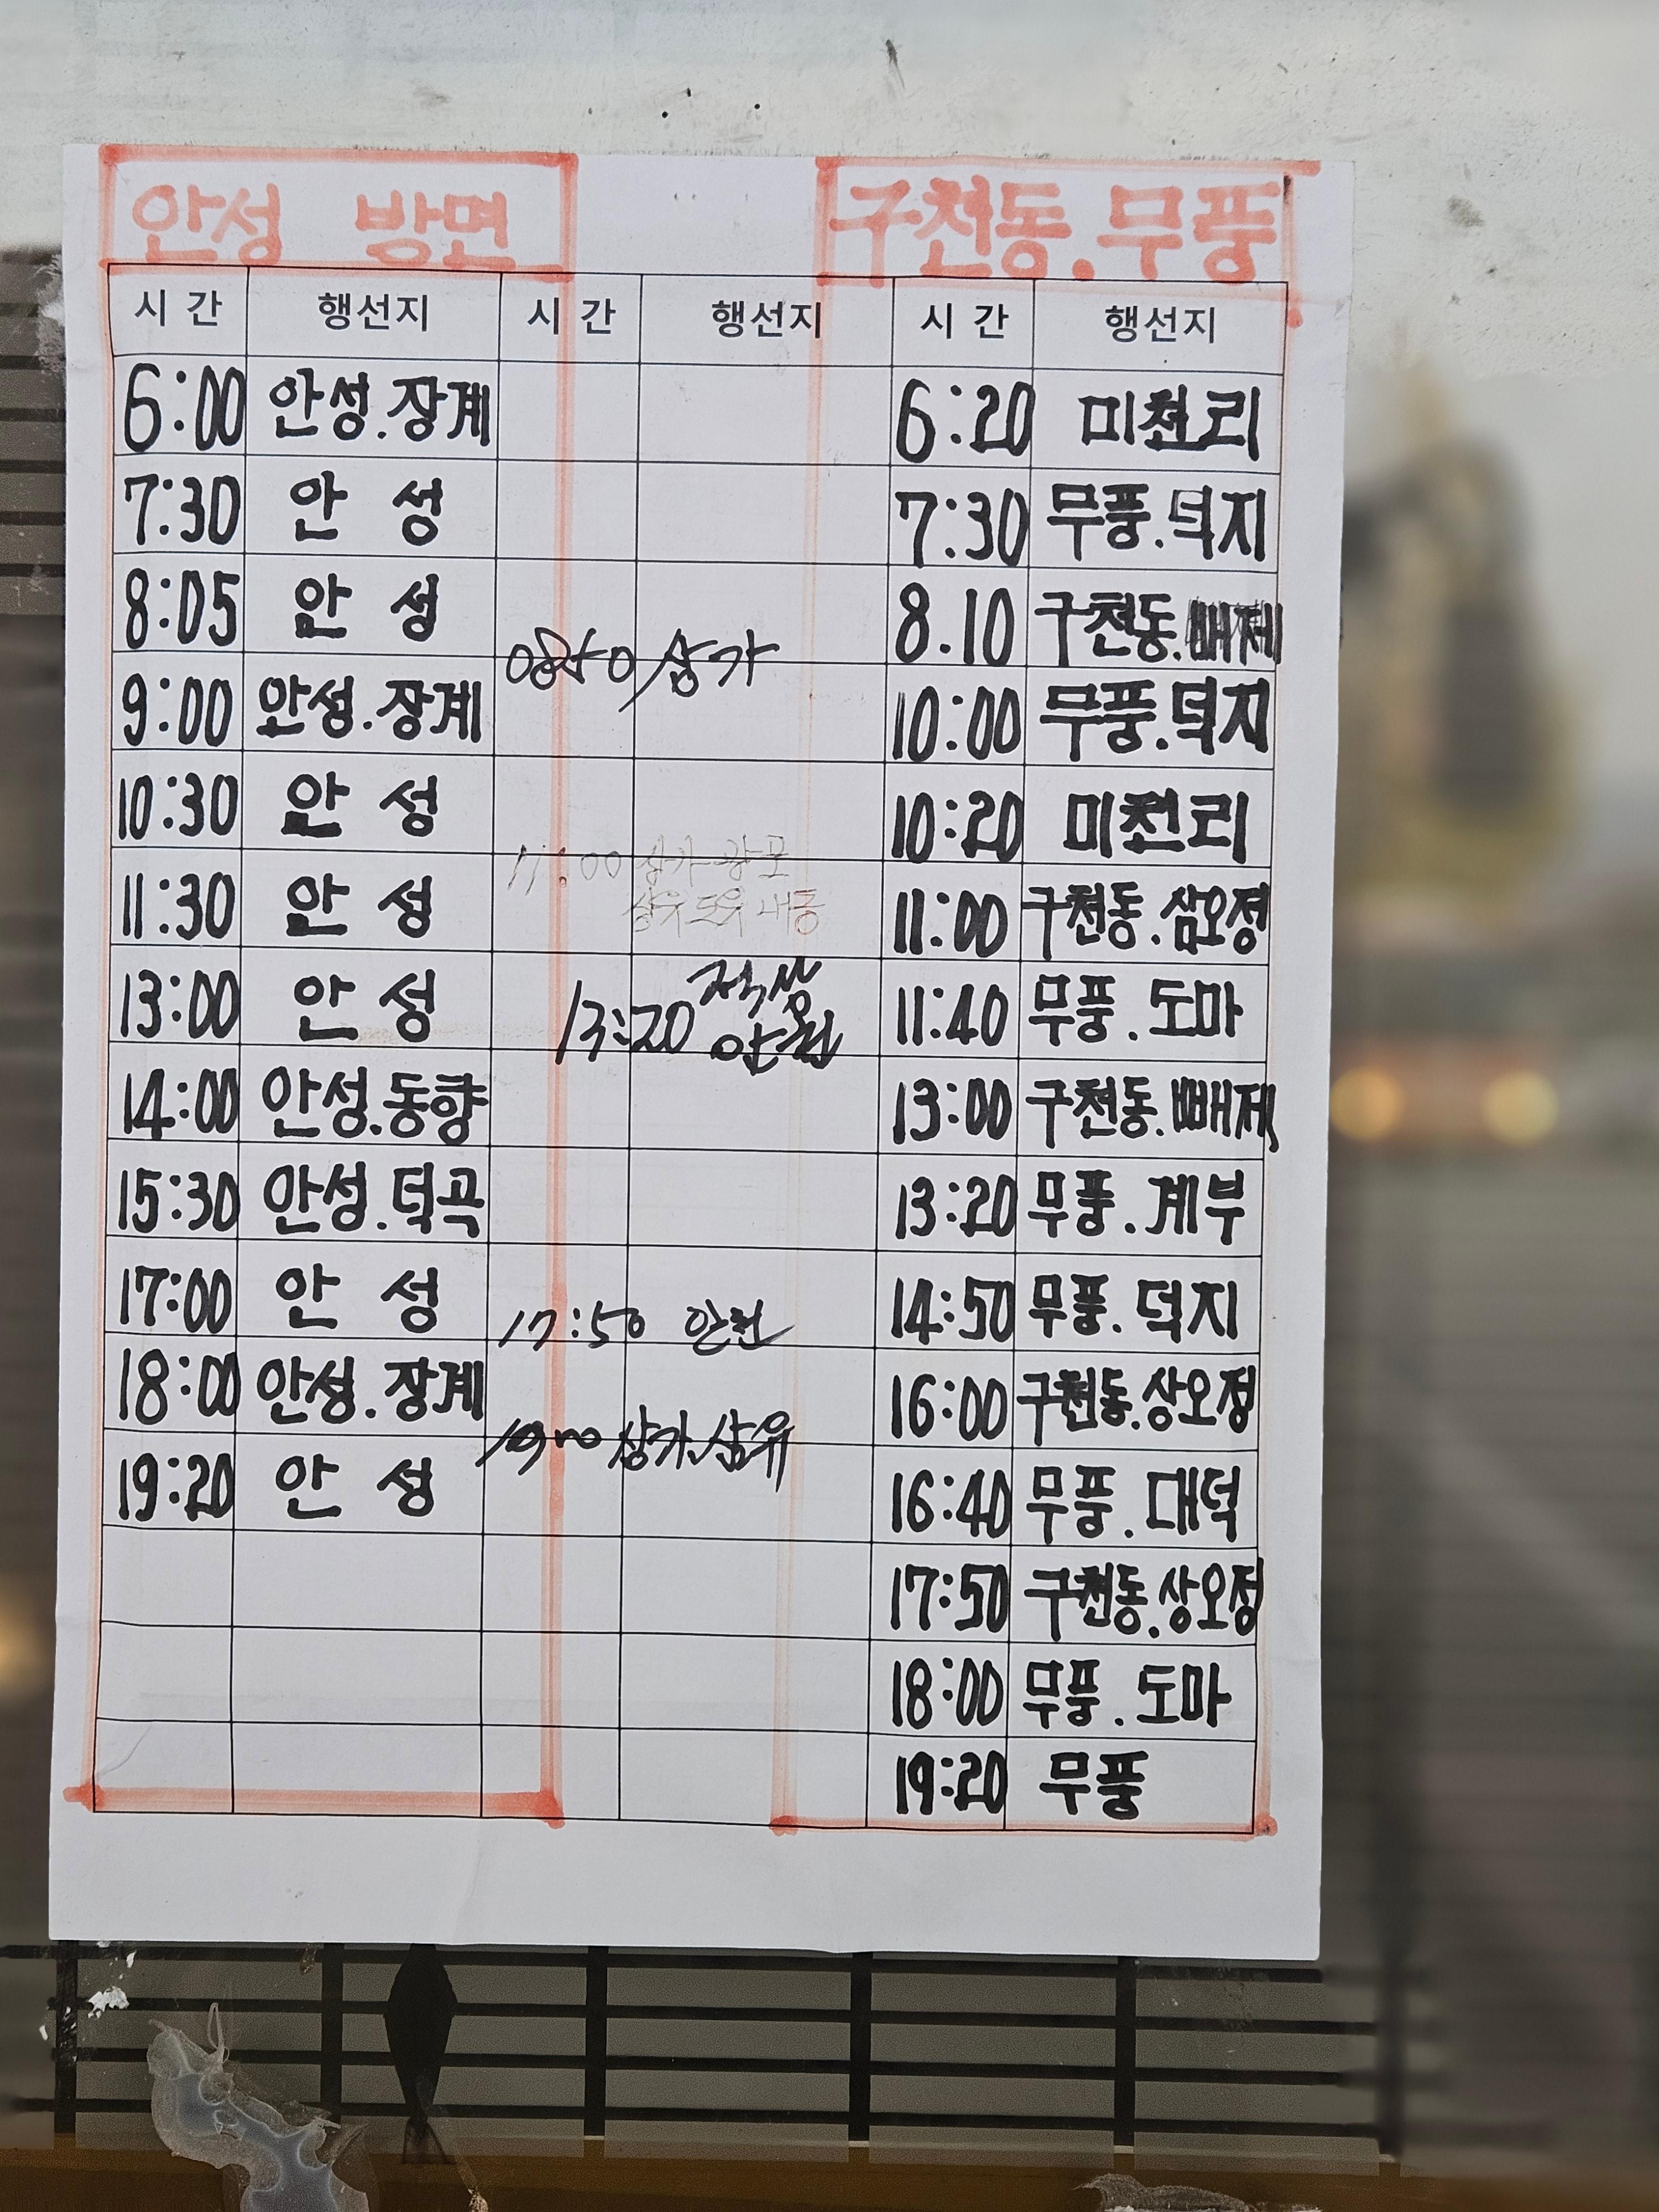 안성 방면 구천동.무풍
시 간 행선지 시 간 행선지 시 간 행선지
6:00 안성.장계 6:20 미천리
7:30 안 성 7:30 무풍.덕지
8:05 안 성 8.10 구천동.빼재
08:50 상가
9:00 안성.장계 10:00 무풍.덕지
10:30 안 성 10:20 미천리
11:00 상가
11:30 안 성 11:00 구천동.삼오정
13:00 안 성 13:20 적상 안천 11:40 무풍.도마
14:00 안성.동향 13:00 구천동.빼재
15:30 안성.덕곡 13:20 무풍.계부
17:00 안 성 17:50 안천 14:50 무풍.덕지
18:00 안성.장계 16:00 구천동.상오정
상가.삼유
19:20 안 성 16:40 무풍.대덕
17:50 구천동.상오정
18:00 무풍.도마
19:20 무풍